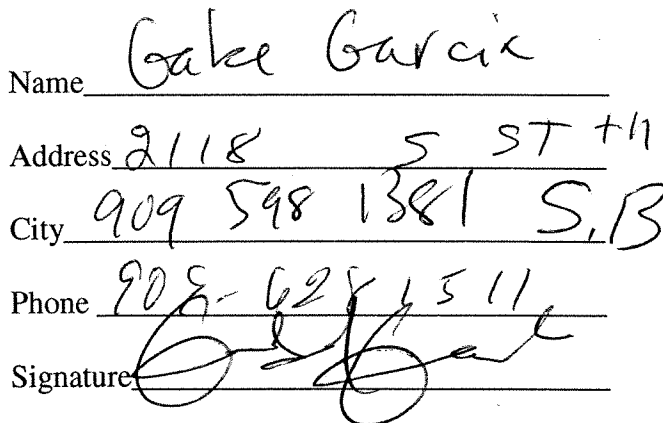 Name Gabe Garcia
Address 2118 5 ST th
City 909 598 1381 S.B
Phone 909-628 1511
Signature